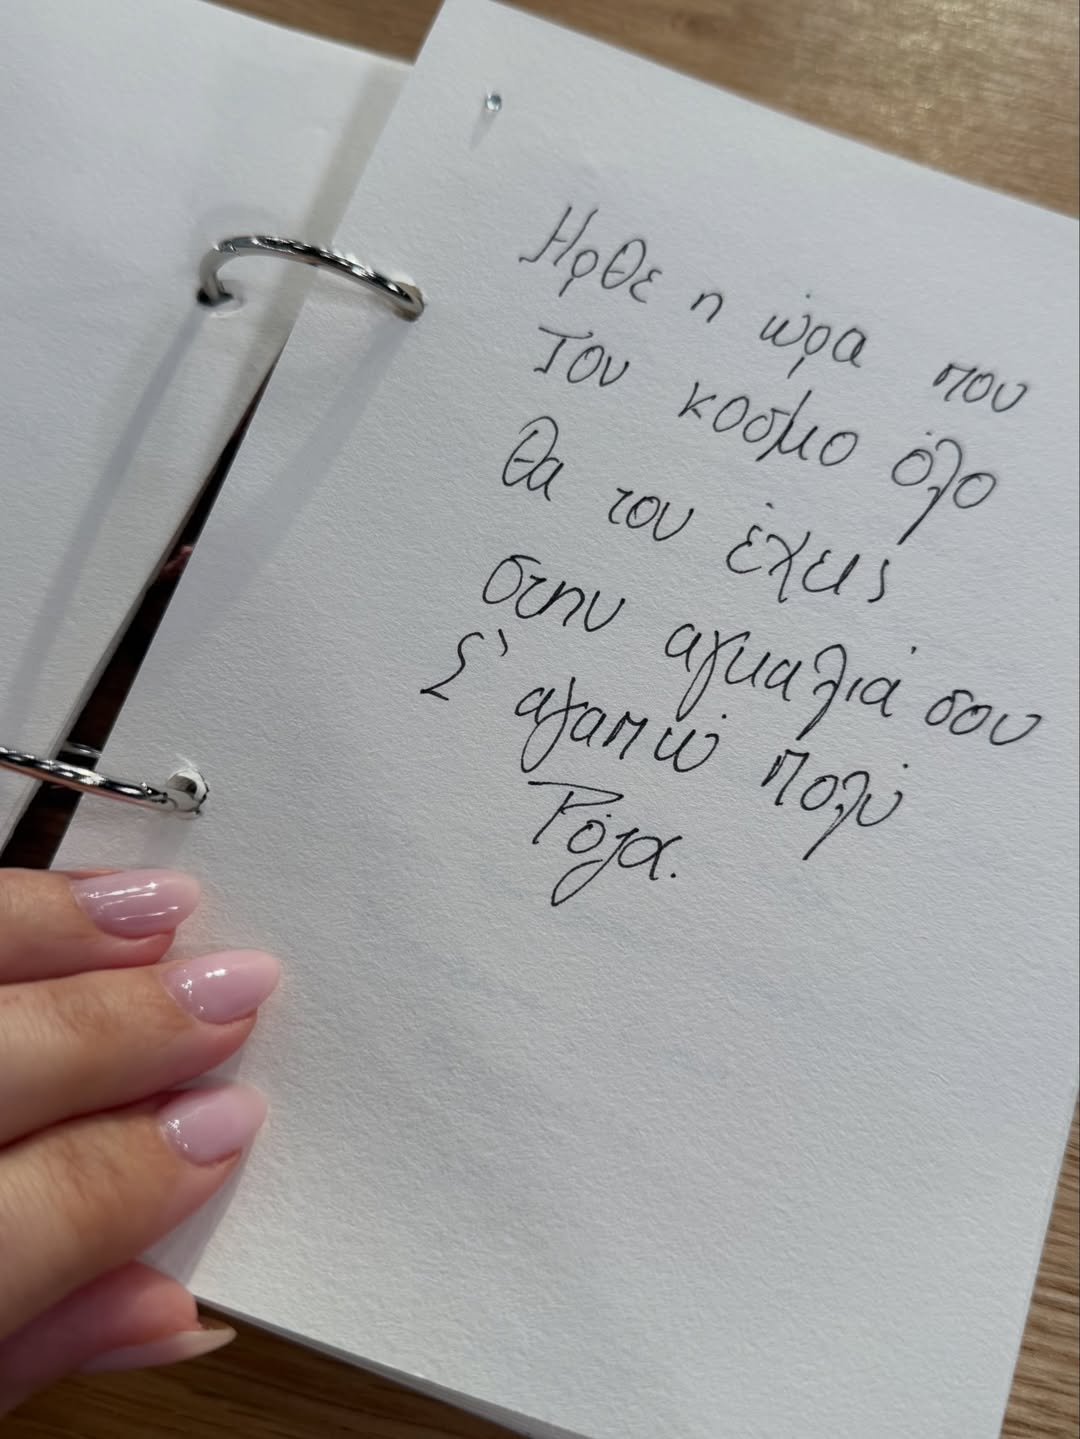 Ηρθε η ώρα που
τον κοσμο όλο
θα τον έχεις
στην αγκαλιά σου
Σ' αγαπώ πολύ
Ρόζα.